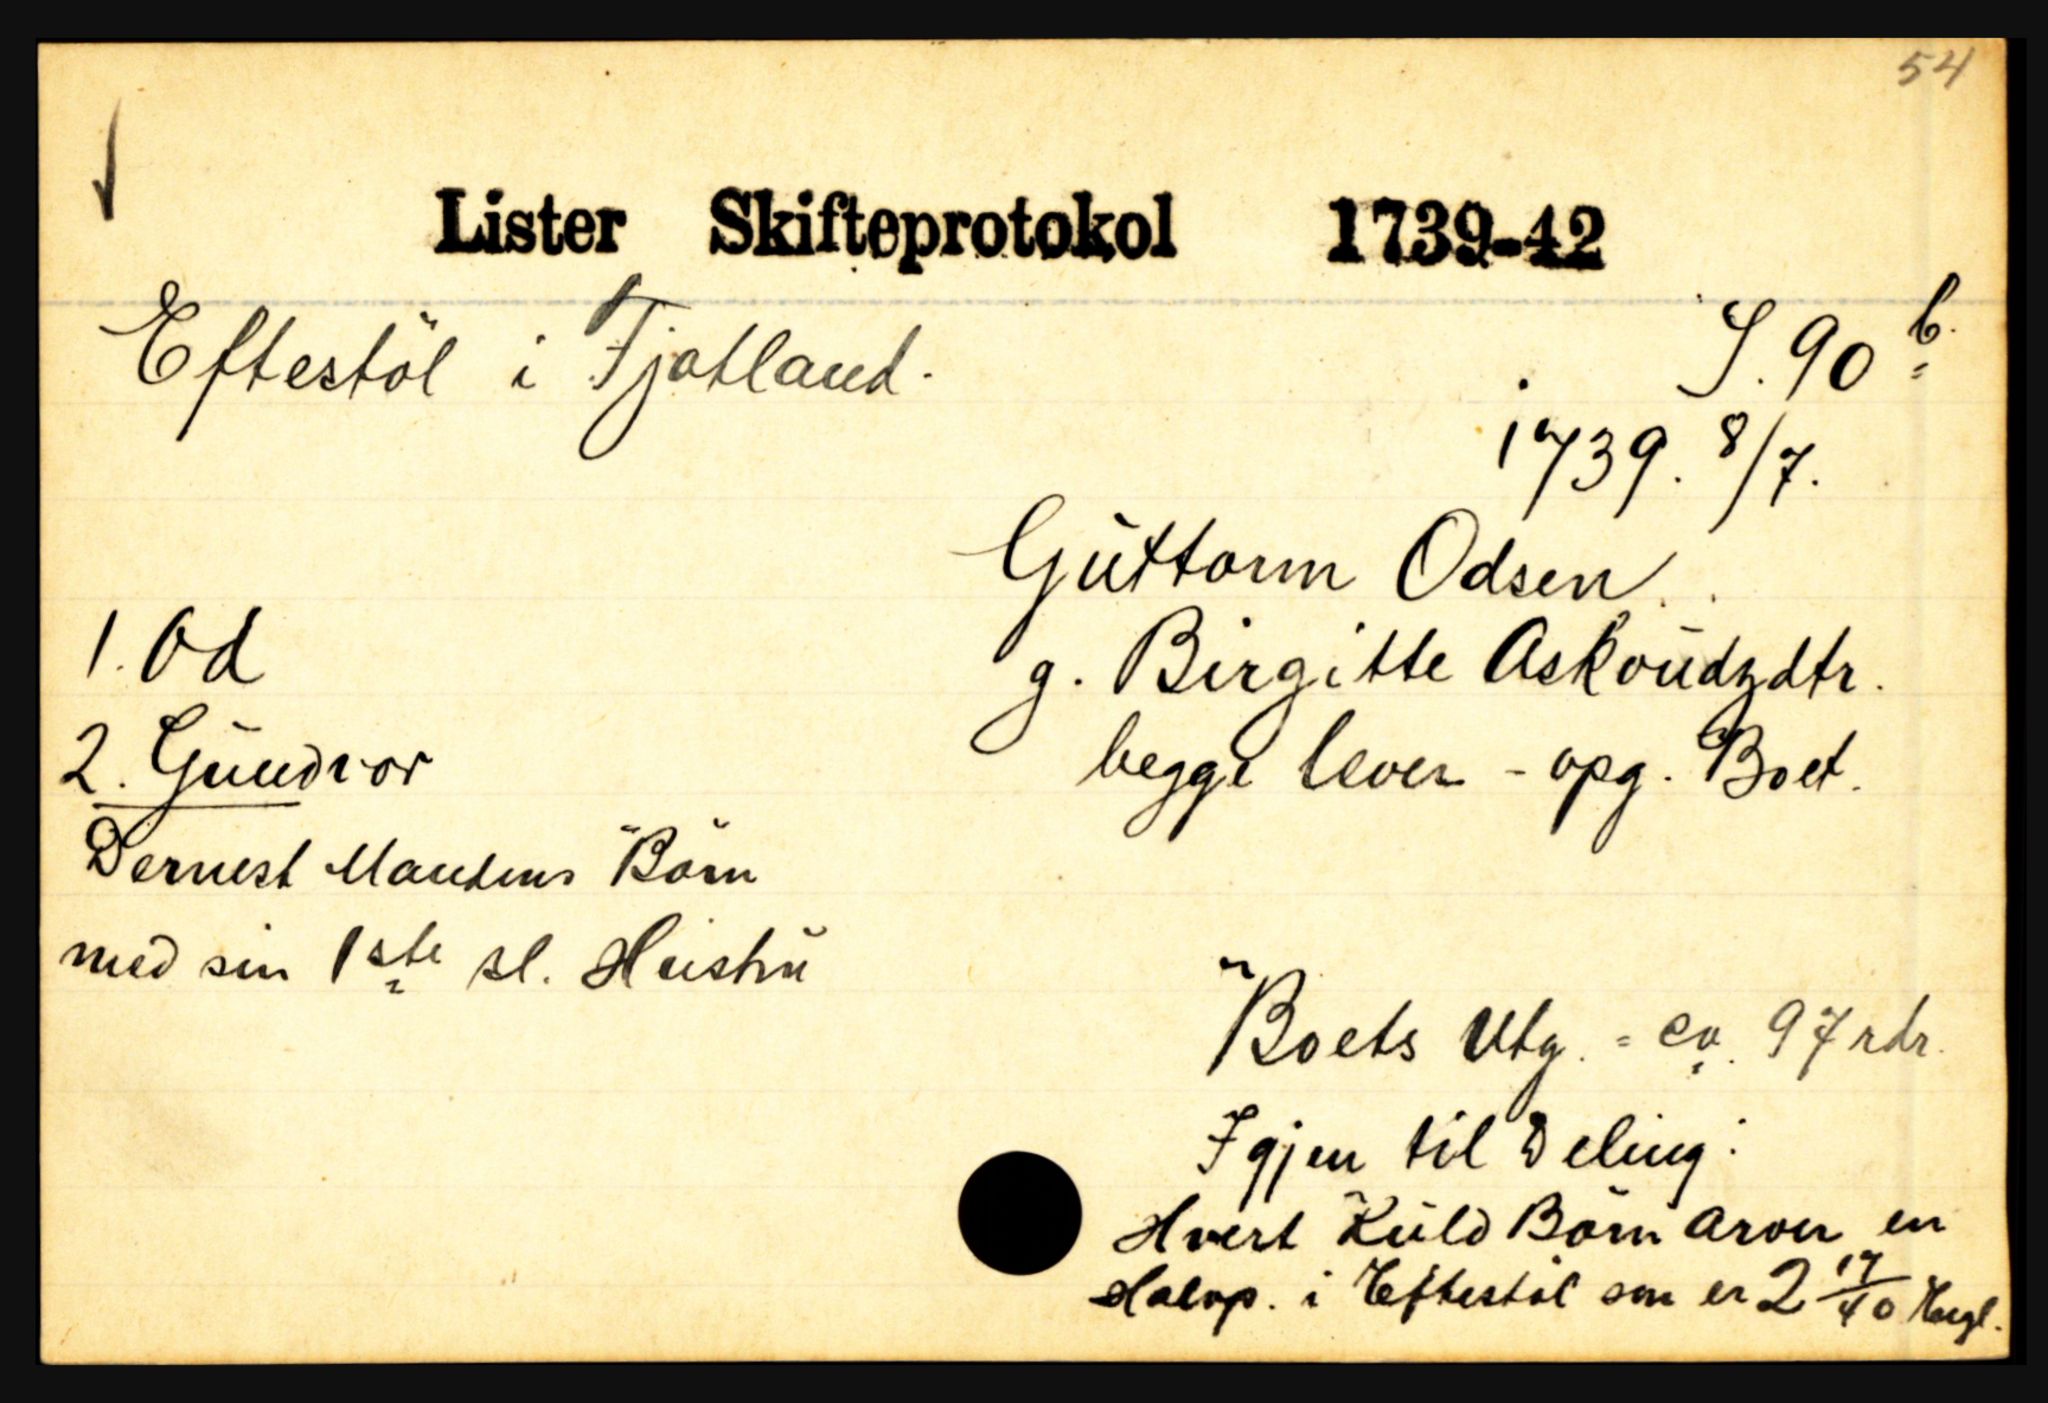 54
Lister Skifteprotokol 1739-42
Eftestöl i Fjotland.
S. 90 b.
1739. 8/7.
Guttorm Odsen
g. Birgitte Askoudzdtr.
begge lever - opg. Boet.
1. Od
2. Gundvor
Dernest Mandens Börn
med sin 1ste sl. Hustru
Boets Utg. = ca. 97 rdr.
Igjen til Deling:
Hvert Kuld Börn arver en
Halvp. i Eftestöl som er 2 17/40 Engl.